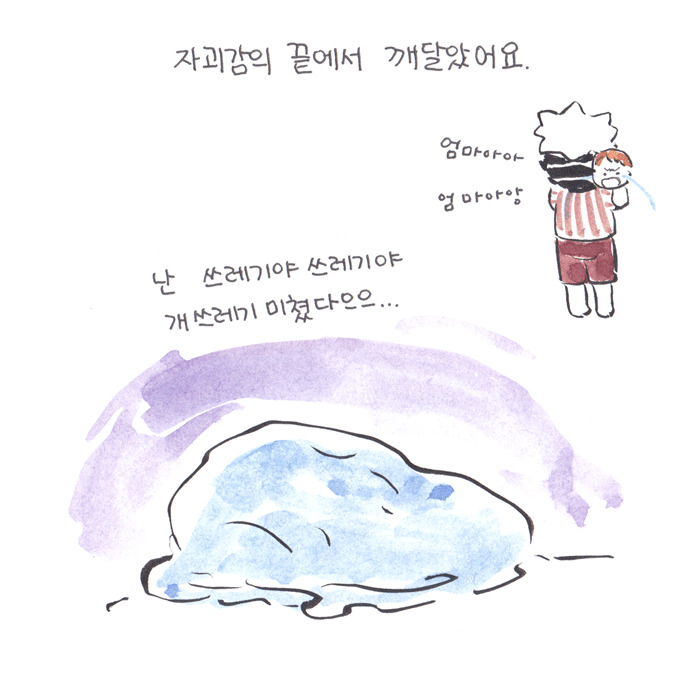 자괴감의 끝에서 깨달았어요.
엄마아아
엄마아앙
난 쓰레기야 쓰레기야
개쓰레기 미쳤다으으...